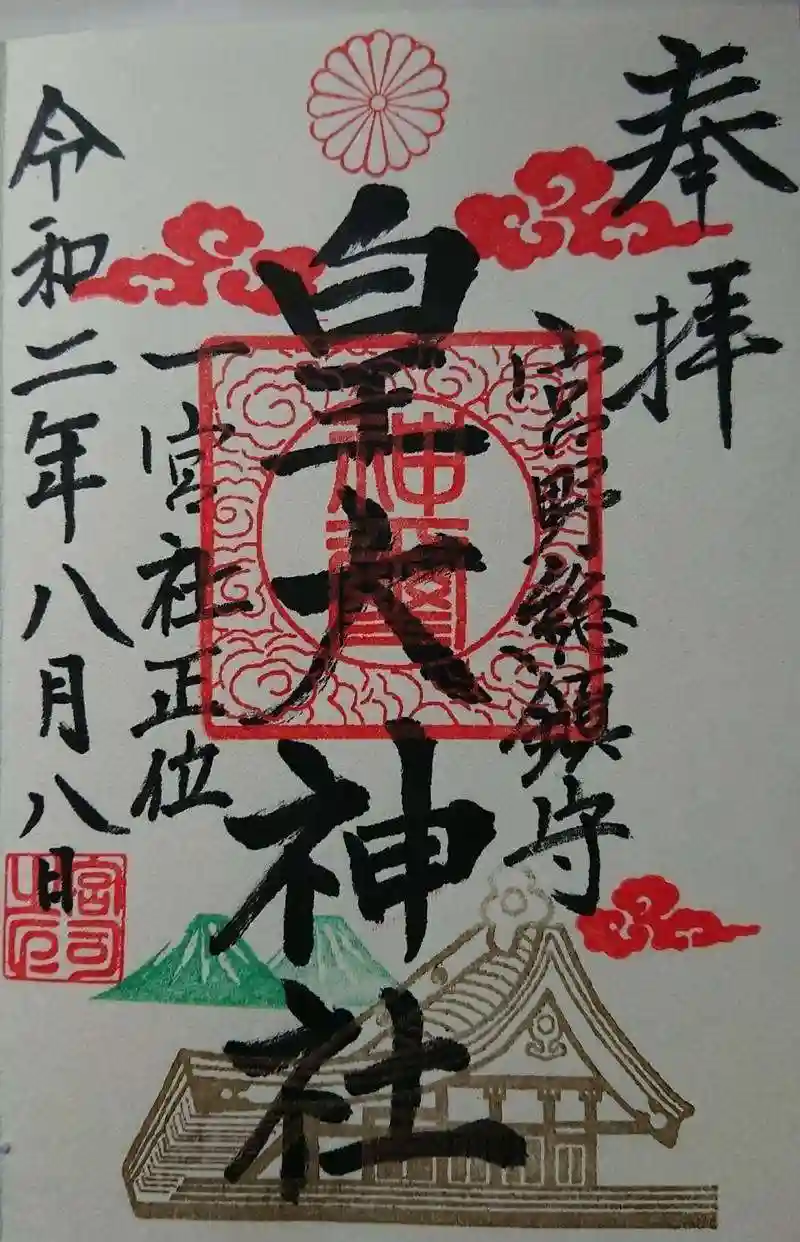 奉拝
宮野総鎮守
皇大神社
神璽
一宮社正位
令和二年八月八日
宮司之印